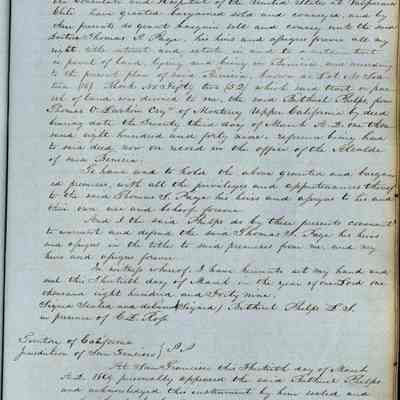 the Consulate and Hospital of the United States at Valparaiso
Chili have granted bargained sold and conveyed, and by
these presents do grant bargain sell and convey, unto the said
Doctor Thomas S. Page, his heirs and assigns forever all my
right, title interest and estate in and to a certain tract
or parcel of land, lying and being in Benicia, and according
to the present plan of said Benicia, known as Lot No Six
teen (16) Block No Fifty two (52) which said tract or par
cel of land was deeded to me, the said Bethuel Phelps, from
Thomas O. Larkin Esqr of Monterey Upper California by deed
bearing date the Twenty third day of March A.D. one thou
sand eight hundred and forty nine reference being had
to said deed now on record in the office of the Alcalde
of said Benicia.
To have and to hold the above granted and bargain
ed premises, with all the privileges and appurtenances thereof
to the said Thomas S. Page his heirs and assigns to his and
their own use and behoof forever.
And I the said Phelps do by these presents covenant
to warrant and defend the said Thomas S. Page his heirs
and assigns in the titles to said premises from me, and my
heirs and assigns forever
In witness whereof, I have hereunto set my hand and
seal this Thirtieth day of March in the year of our Lord one
thousand eight hundred and Forty nine.
Signed Sealed and delivered (Signed) Bethuel Phelps L.S.
in presence of C. L. Ross
Territory of California
Jurisdiction of San Francisco } S.S
At San Francisco this Thirtieth day of March
A.D. 1849 personally appeared the said Bethuel Phelps
and acknowledged this instrument by him sealed and